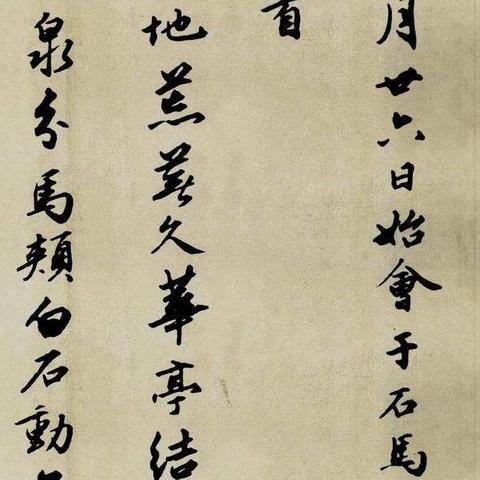 月廿六日始會于石馬
首
地荒蕪久華亭結
泉分馬頰白石動